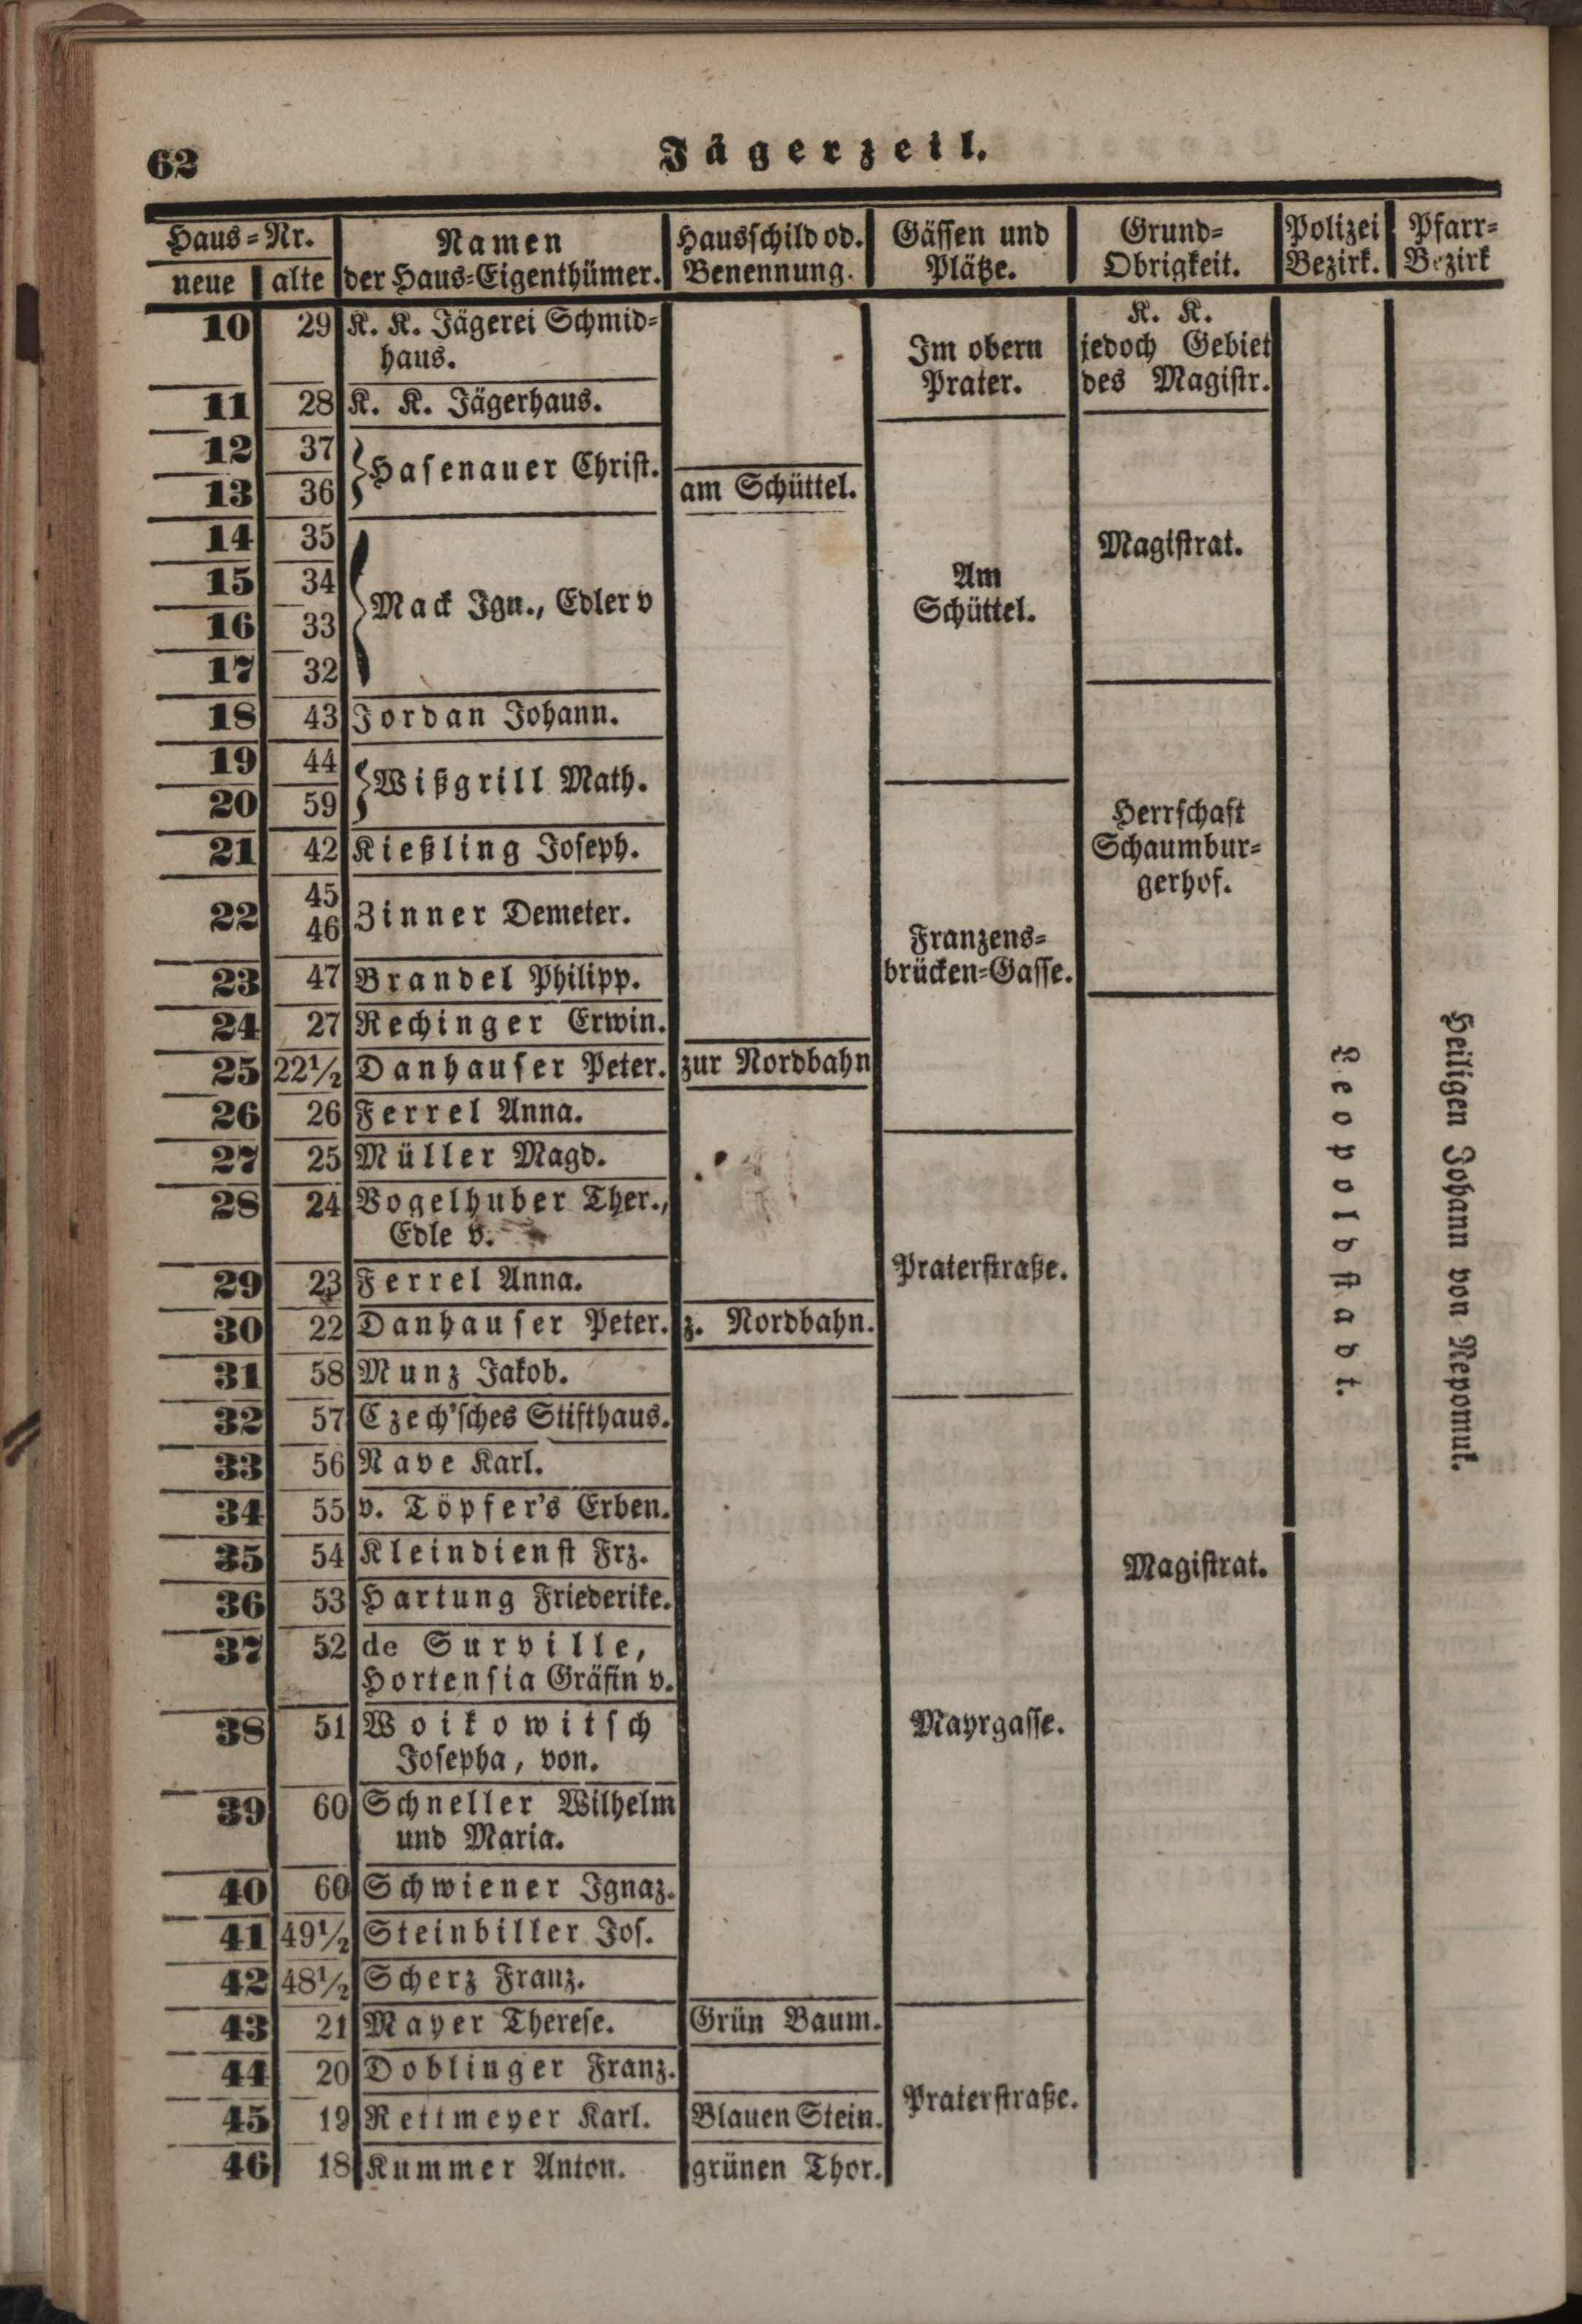 62
Jägerzeil.
Haus-Nr. Namen Hausschild od. Gässen und Grund- Polizei Pfarr-
neue alte der Haus-Eigenthümer. Benennung. Plätze. Obrigkeit. Bezirk. Bezirk
10 29 K. K. Jägerei Schmid-
haus.
Im obern
Prater.
K. K.
jedoch Gebiet
des Magistr.
11 28 K. K. Jägerhaus.
12 37
Hasenauer Christ.
13 36 am Schüttel.
14 35
Magistrat.
15 34
Mack Ign., Edler v
Am
Schüttel.
16 33
17 32
18 43 Jordan Johann.
19 44
Wißgrill Math.
20 59
Herrschaft
Schaumbur-
gerhof.
21 42 Kießling Joseph.
22 45
46 Zinner Demeter.
Franzens-
brücken-Gasse.
23 47 Brandel Philipp.
24 27 Rechinger Erwin.
25 22½ Danhauser Peter. zur Nordbahn
26 26 Ferrel Anna.
27 25 Müller Magd.
28 24 Vogelhuber Ther.,
Edle v.
Praterstraße.
29 23 Ferrel Anna.
30 22 Danhauser Peter. z. Nordbahn.
Leopoldstadt.
Heiligen Johann von Nepomuk.
31 58 Munz Jakob.
32 57 Czech'sches Stifthaus.
33 56 Nave Karl.
34 55 v. Töpfer's Erben.
35 54 Kleindienst Frz.
Magistrat.
36 53 Hartung Friederike.
37 52 de Surville,
Hortensia Gräfin v.
38 51 Woikowitsch
Josepha, von.
Mayrgasse.
39 60 Schneller Wilhelm
und Maria.
40 60 Schwiener Ignaz.
41 49½ Steinbiller Jos.
42 48½ Scherz Franz.
43 21 Mayer Therese. Grün Baum.
44 20 Doblinger Franz.
Praterstraße.
45 19 Rettmeyer Karl. Blauen Stein.
46 18 Kummer Anton. grünen Thor.